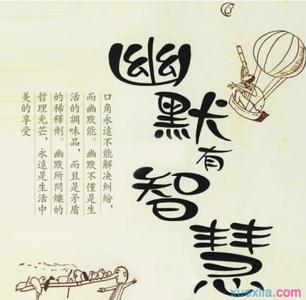 幽默有智慧
口角永遠不能解决糾紛，
而幽默能。幽默不僅是生
活的調味品，而且是矛盾
的稀釋劑。幽默所閃爍的
哲理光芒，永遠是生活中
美的享受
xuexila.com